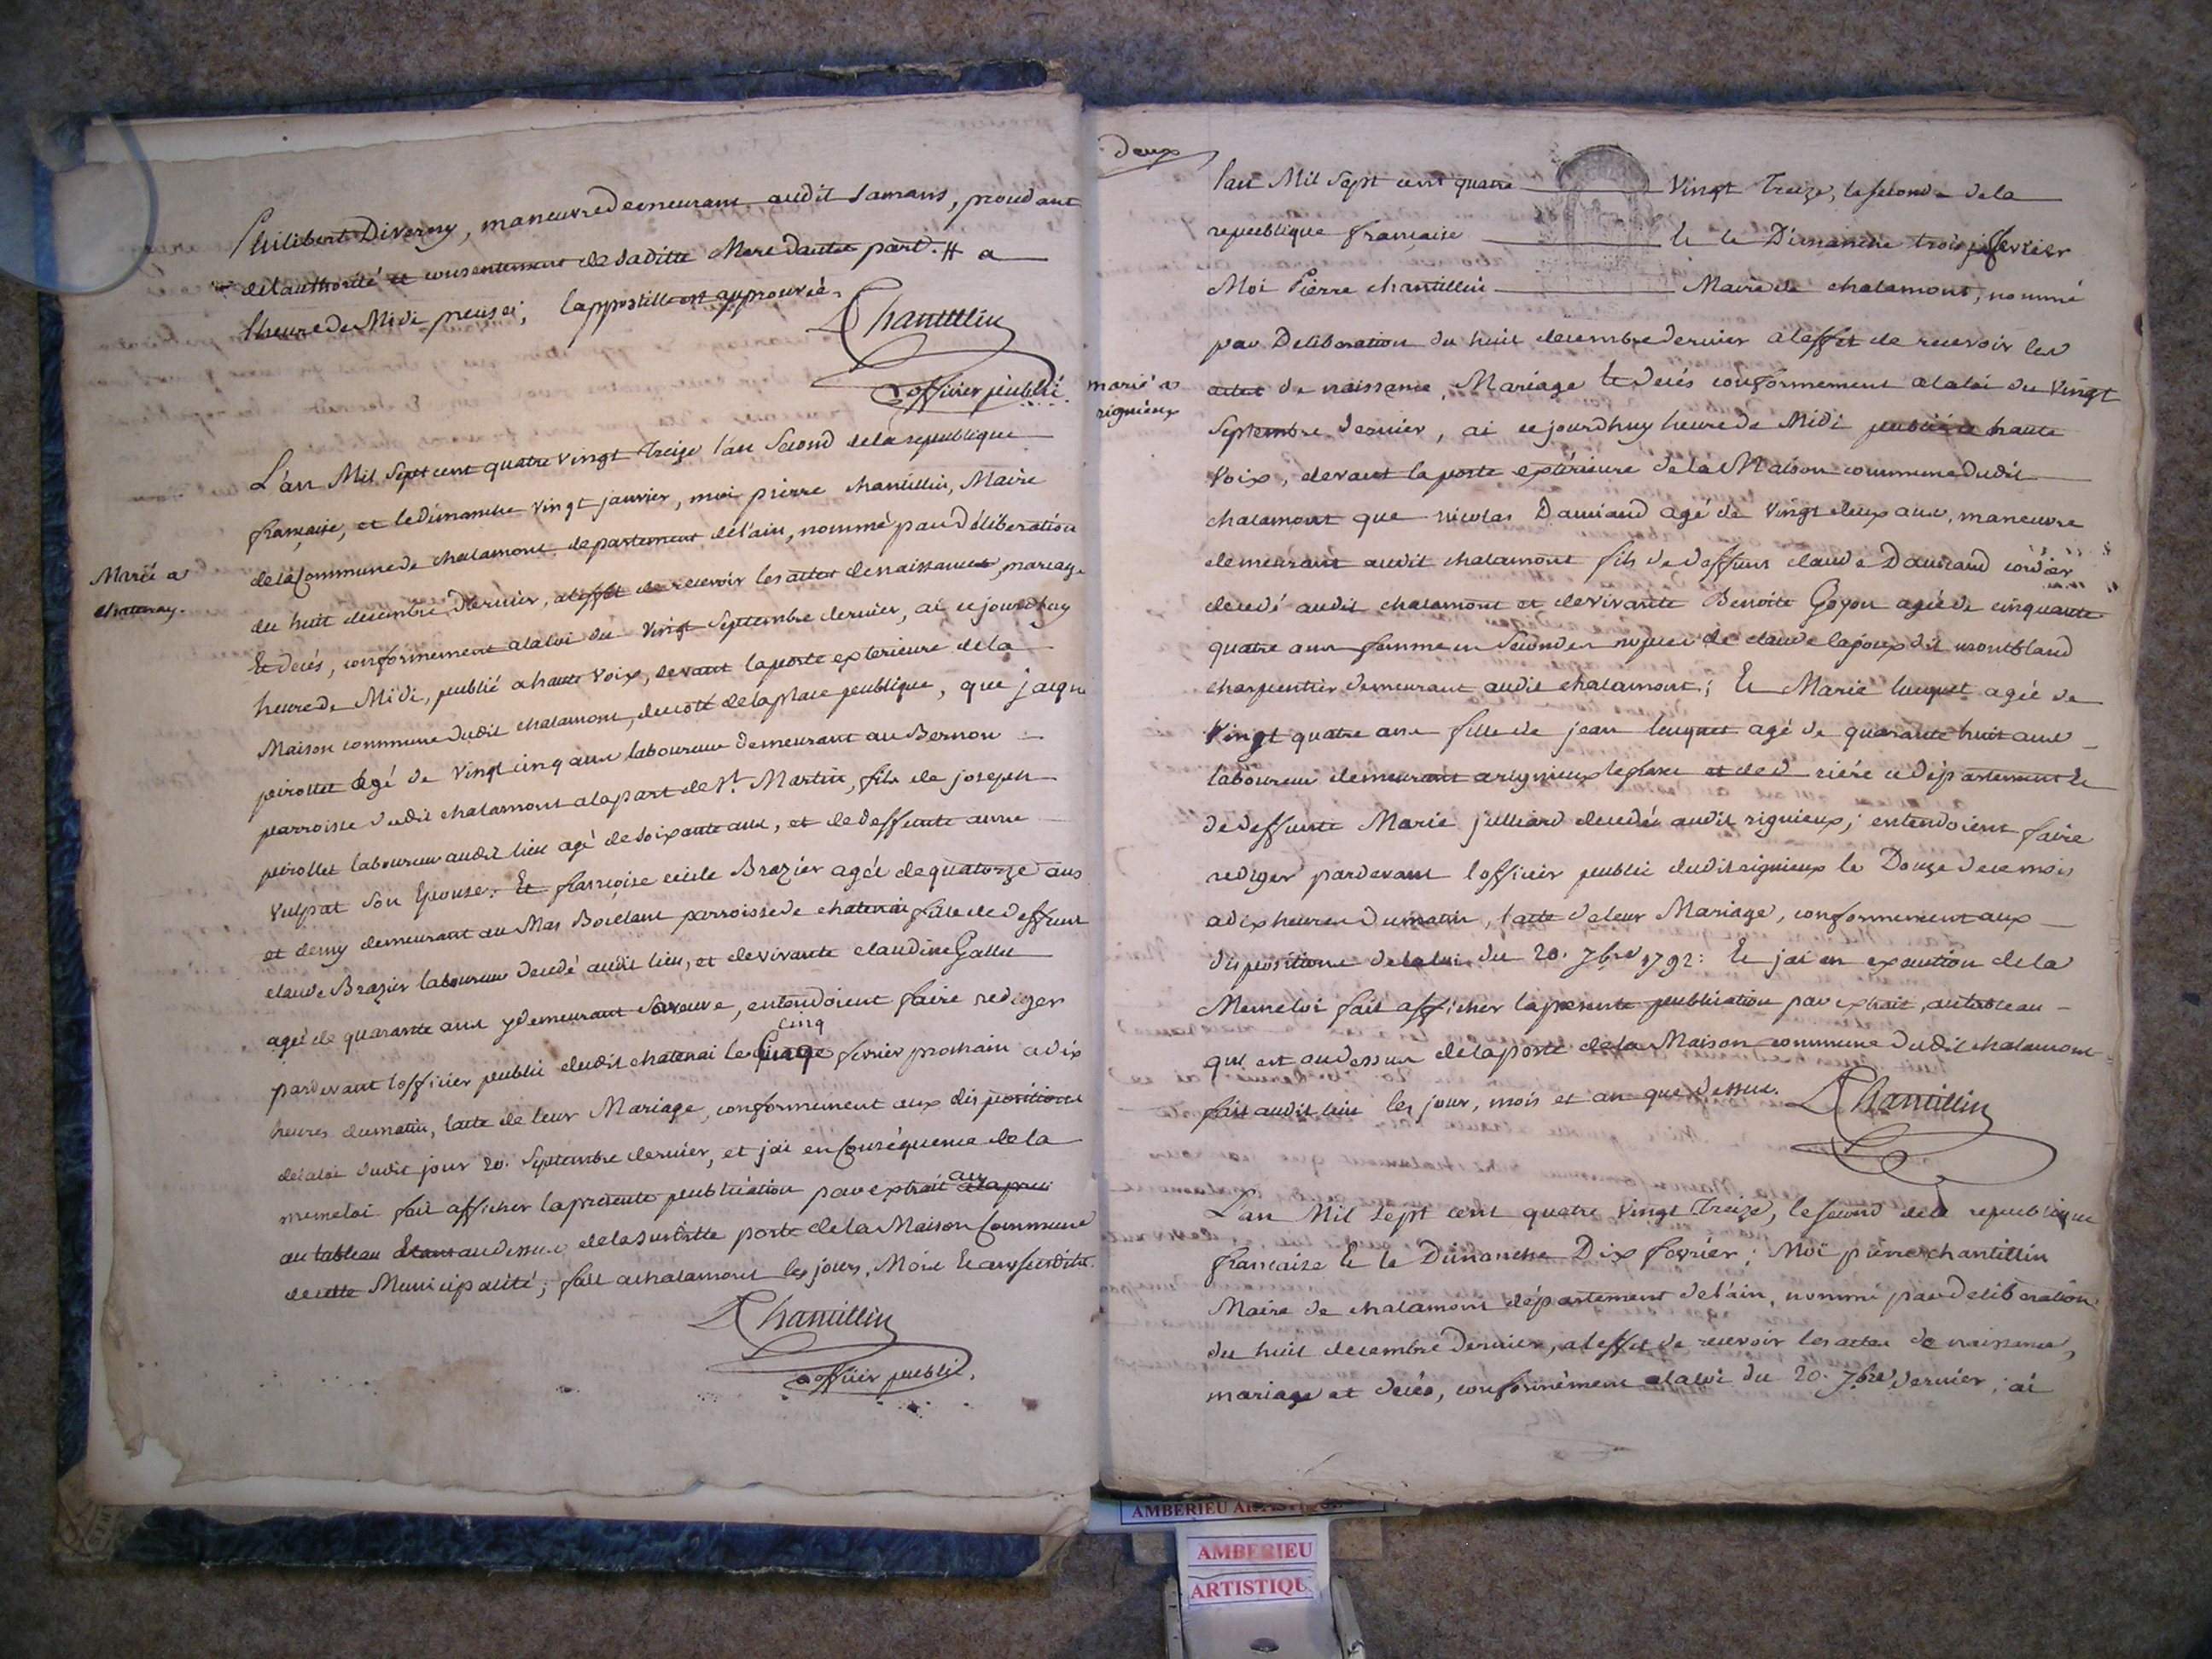 Philibert Divereng, manœuvre demeurant audit Samans, procédant
de l'authorité et consentement de saditte Mere dautre part. # a
lheure de Midi precise; lappostille est approuvée.
PChantillin
officier public.
L'an Mil Sept cent quatre vingt Treize l'an Second de la republique
française, et le dimanche vingt janvier, moi pierre chantillin, Maire
de la Commune de chalamont departement de l'ain, nommé par Déliberation
Marié a
chatenay.
du huit decembre dernier, a leffet de recevoir les actes de naissances, mariage
Et decés, conformement a la loi du Vingt Septembre dernier, ai cejourdhuy
heure de Midi, publié a haute Voix, devant la porte exterieure de la
Maison commune dudit chalamont, du coté de la place publique, que jacque
peirollet agé de Vingt cinq ans laboureur demeurant au Bernon
parroisse dudit chalamont a la part de St. Martin, fils de joseph
peirollet laboureur audit lieu agé de soixante ans, et de deffunte anne
Vulpat son Epouse; Et françoise cecile Brazier agée de quatorze ans
et demy demeurant au Mas Boulant parroisse de chatenai fille de deffunt
claude Brazier laboureur decedé audit lieu, et de vivante claudine Gallet
agée de quarante ans y demeurant sa veuve, entendoient faire rediger
cinq
pardevant lofficier public dudit chatenai le Cinq fevrier prochain a dix
heures du matin, lacte de leur Mariage, conformement aux dispositions
de la loi dudit jour 20. Septembre dernier, et jai en Conséquence de la
au
meme loi fait afficher la presente publication par extrait
au tableau Etant au dessus de la susditte porte de la Maison Commune
de cette Municipalité; fait a chalamont les jours, Mois Et an susdits.
PChantillin
officier public.
deux
l'an Mil Sept cent quatre Vingt Treize, le second de la
republique française Et le Dimanche trois fevrier
Moi Pierre chantillin Maire de chalamont, nommé
par Deliberation du huit decembre dernier a leffet de recevoir les
marié a
rignieux
actes de naissance, Mariage Et decés conformement a la loi du Vingt
Septembre dernier, ai cejourdhuy heure de Midi publié a haute
Voix, devant la porte extérieure de la Maison commune dudit
chalamont que nicolas Damiand agé de Vingt deux ans, maneuvre
demeurant audit chalamont fils de deffunt claude Damiand cordier
decedé audit chalamont et de vivante Benoite Goyon agée de cinquante
quatre ans femme en Secondes noces de claude lapoux dit montbland
charpentier demeurant audit chalamont; Et Marie luquet agée de
Vingt quatre ans fille de jean luquet agé de quarante huit ans
laboureur demeurant a rignieux le franc rière ce département Et
de deffunte Marie julliard decedée audit rignieux; entendoient faire
rediger pardevant lofficier public dudit rignieux le Douze de ce mois
a dix heures du matin, lacte de leur Mariage, conformement aux
dispositions de la loi du 20. 7bre 1792: Et jai en execution de la
Meme loi fait afficher la presente publication par extrait, au tableau
qui est au dessus de la porte de la Maison commune dudit chalamont
fait audit lieu les jour, mois et an que dessus.
PChantillin
L'an Mil Sept cent quatre Vingt Treize, le second de la republique
française Et le Dimanche Dix fevrier; Moi pierre chantillin
Maire de chalamont département de l'ain, nommé par deliberation
du huit decembre Dernier, a leffet de recevoir les actes de naissance,
mariage et decés, conformément a la loi du 20. 7bre dernier, ai
AMBERIEU
AMBERIEU
ARTISTIQU